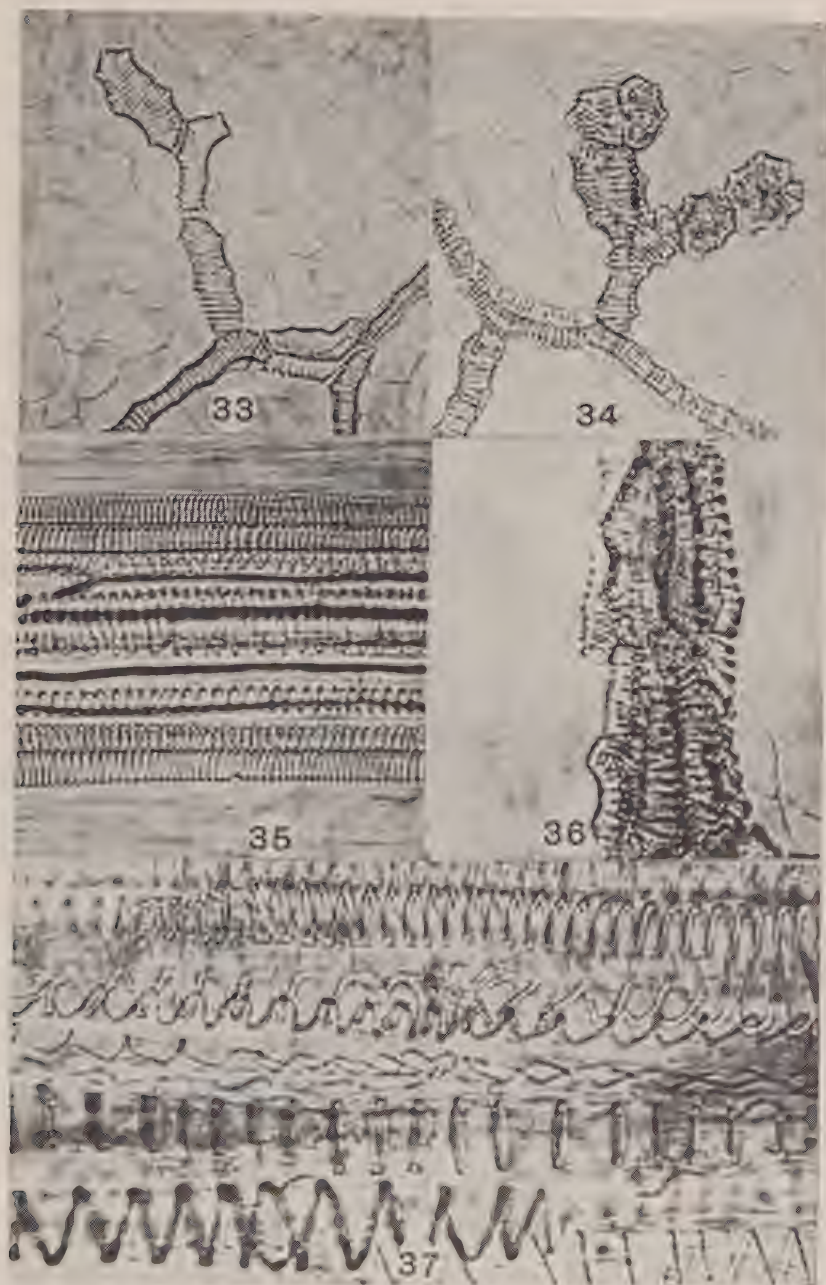 33
34
35
36
37